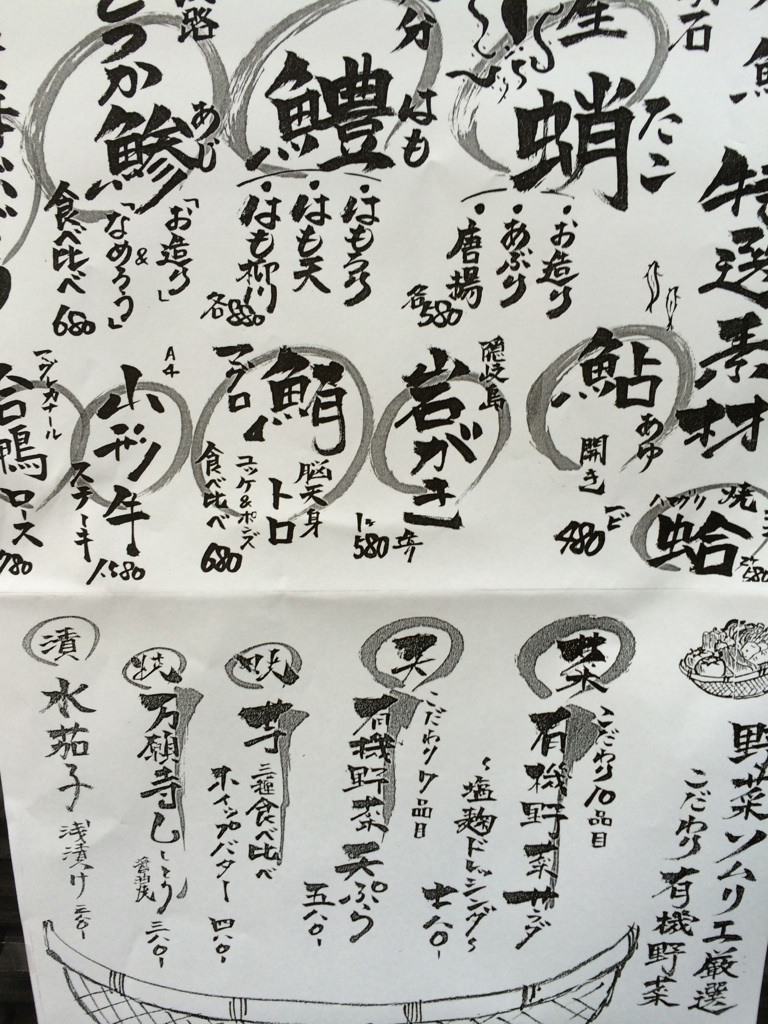 特選素材
石
産
蛸
たこ
・お造り
・あぶり
・唐揚
各580
分
鱧
はも
・はも天
・はも柳川
各880
淡路
鯵
あじ
「お造り」
&
「なめろう」
食べ比べ
680
焼
ハマグリ
蛤
580
鮎
あゆ
開き
480
隠岐島
岩がき
580
鮪
マグロ
脳天身
トロ
ユッケ&ポンズ
食べ比べ
680
A4
山形牛
ステーキ
1,580
合鴨
ロース
780
野菜ソムリエ厳選
こだわり有機野菜
菜
こだわり10品目
有機野菜サラダ
~塩麹ドレッシング~
七八〇-
天
こだわり7品目
有機野菜天ぷら
五八〇-
芋
三種食べ比べ
ホイップバター
四八〇-
焼
万願寺ししとう
三八〇-
漬
水茄子
浅漬け
三八〇-